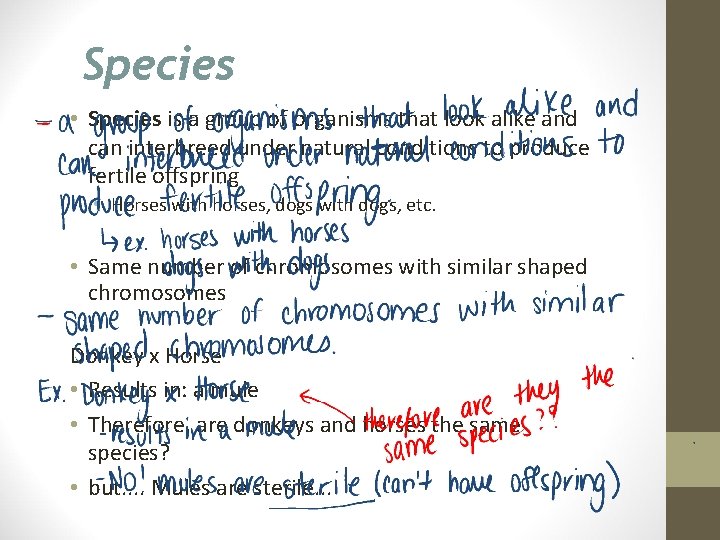 Species
• Species is a group of organisms that look alike and
can interbreed under natural conditions to produce
fertile offspring
Horses with horses, dogs with dogs, etc.
• Same number of chromosomes with similar shaped
chromosomes
Donkey x Horse
• Results in: a mule
• Therefore, are donkeys and horses the same
species?
• but.... Mules are sterile...
- a group of organisms that look alike and
can interbreed under natural conditions to
produce fertile offspring.
↳ ex. horses with horses
dogs with dogs
- same number of chromosomes with similar
shaped chromosomes.
Ex. Donkey x Horse
- results in a mule
therefore are they the
same species??
- No! mules are sterile (can't have offspring)